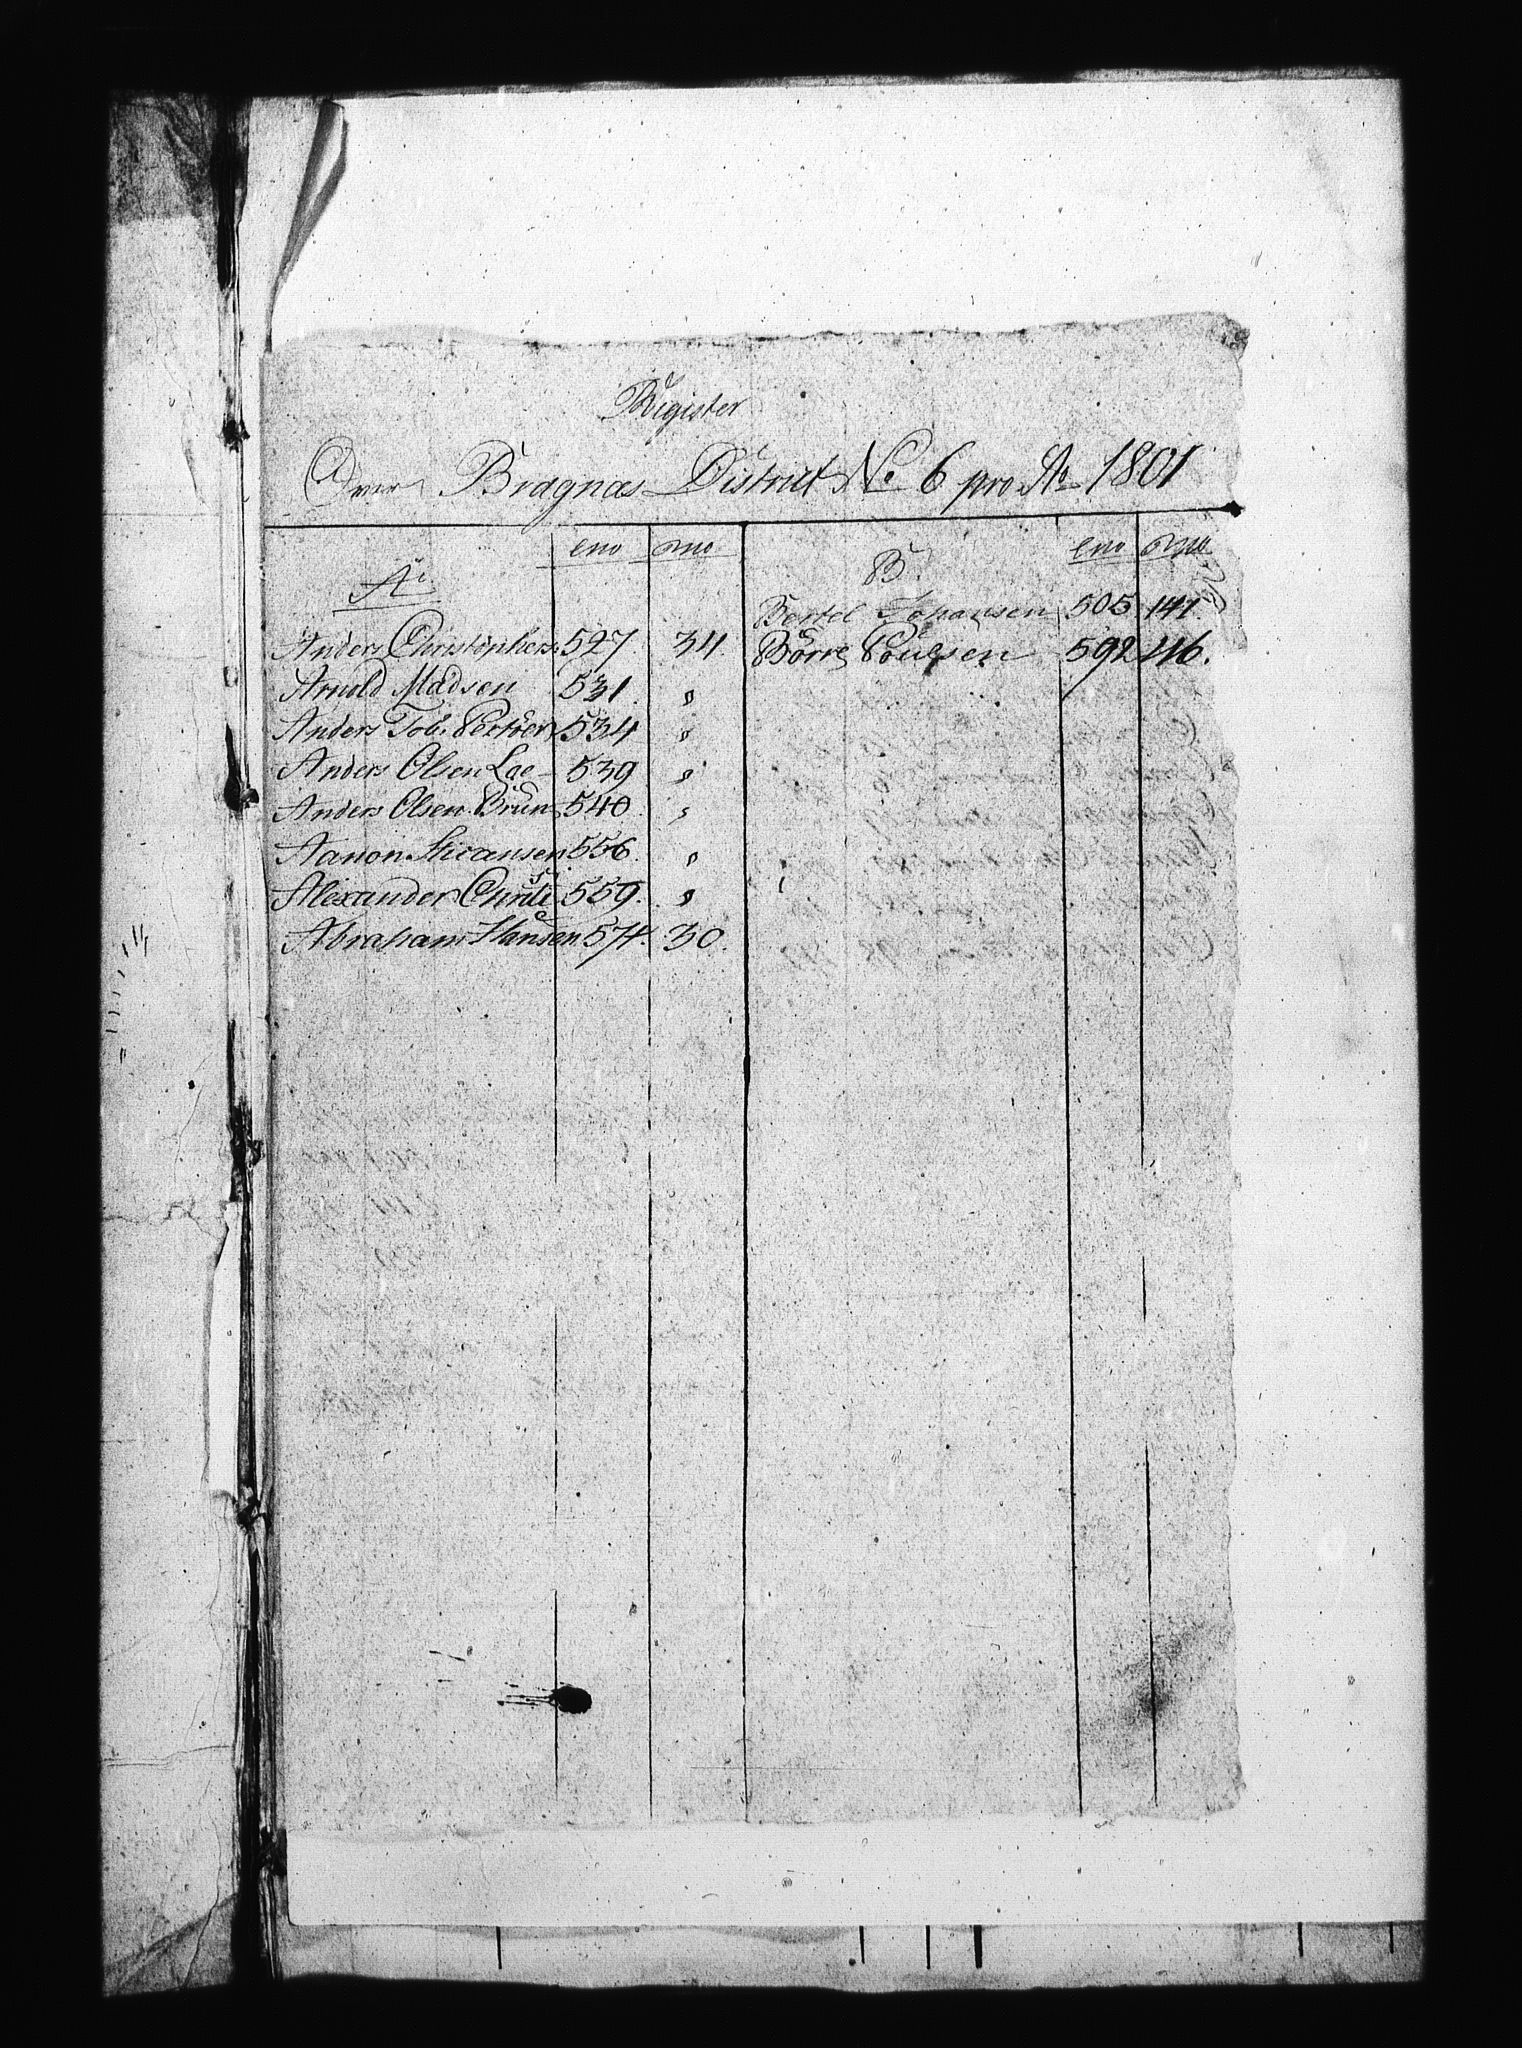 Register
Over Bragnæs District No 6 pro Ao 1801
A.
Anders Christophers: 527 34
Arnold Madsen 531. "
Anders Tob. 534 "
Anders Olsen Lae 539 "
Anders Olsen Bruun 540 "
Aanon 556. "
Alexander Christi 559. "
Abraham Hansen 574. 30.
B.
Bertel Johansen 505 147.
Börre Poulsen 592 46.